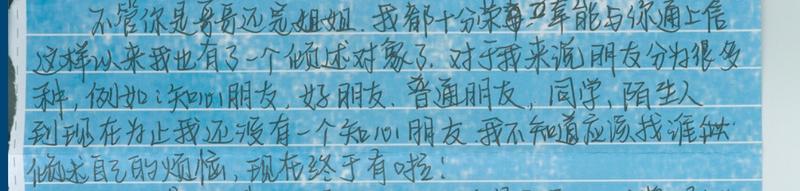 不管你是哥哥还是姐姐.我都十分荣幸能与你通上信
这样以来我也有了一个倾述对象了.对于我来说朋友分为很多
种,例如:知心朋友、好朋友、普通朋友、同学、陌生人
到现在为止我还没有一个知心朋友.我不知道应该找谁
倾述自己的烦恼,现在终于有啦!